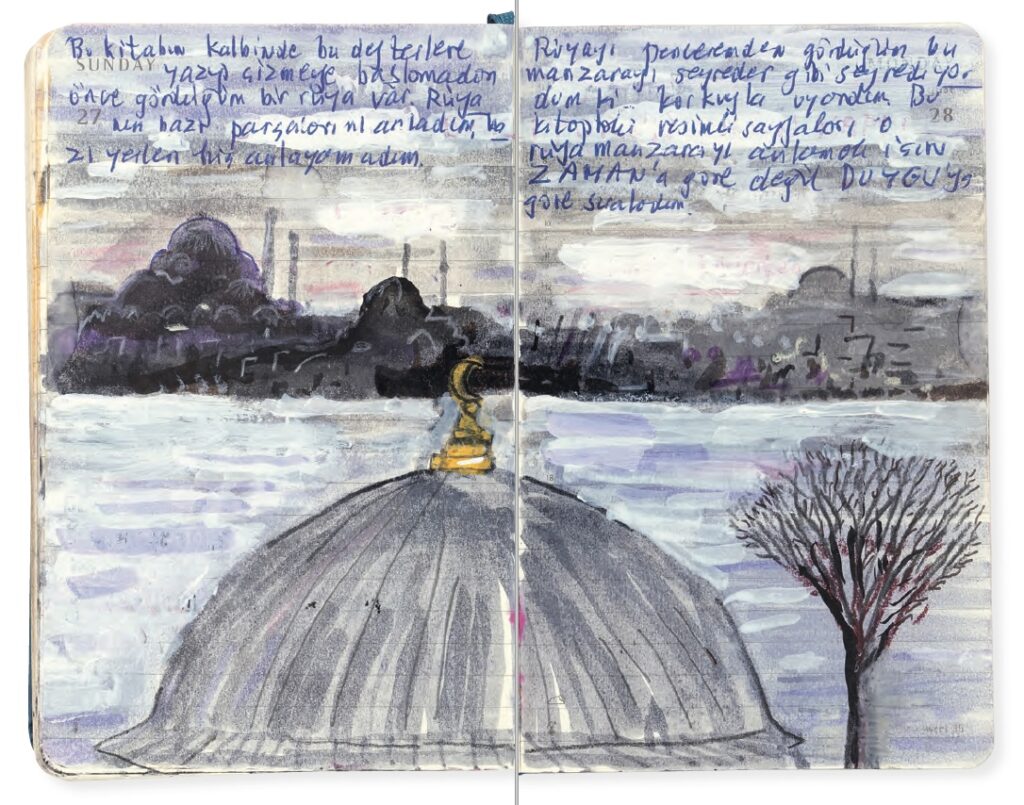 Bu kitabın kalbinde bu defterlere
SUNDAY
yazıp çizmeye başlamadan
önce gördüğüm bir rüya var. Rüya
27
nın bazı parçalarını anladım, ba
zı yerleri hiç anlayamadım.
Rüyayı pencereden gördüğüm bu
manzarayı seyreder gibi seyrediyor-
dum ki korkuyla uyandım. Bu
28
kitaptaki resimli sayfaları o
rüya manzarayı anlamak için
ZAMAN'a göre değil DUYGU'ya
göre sıraladım.